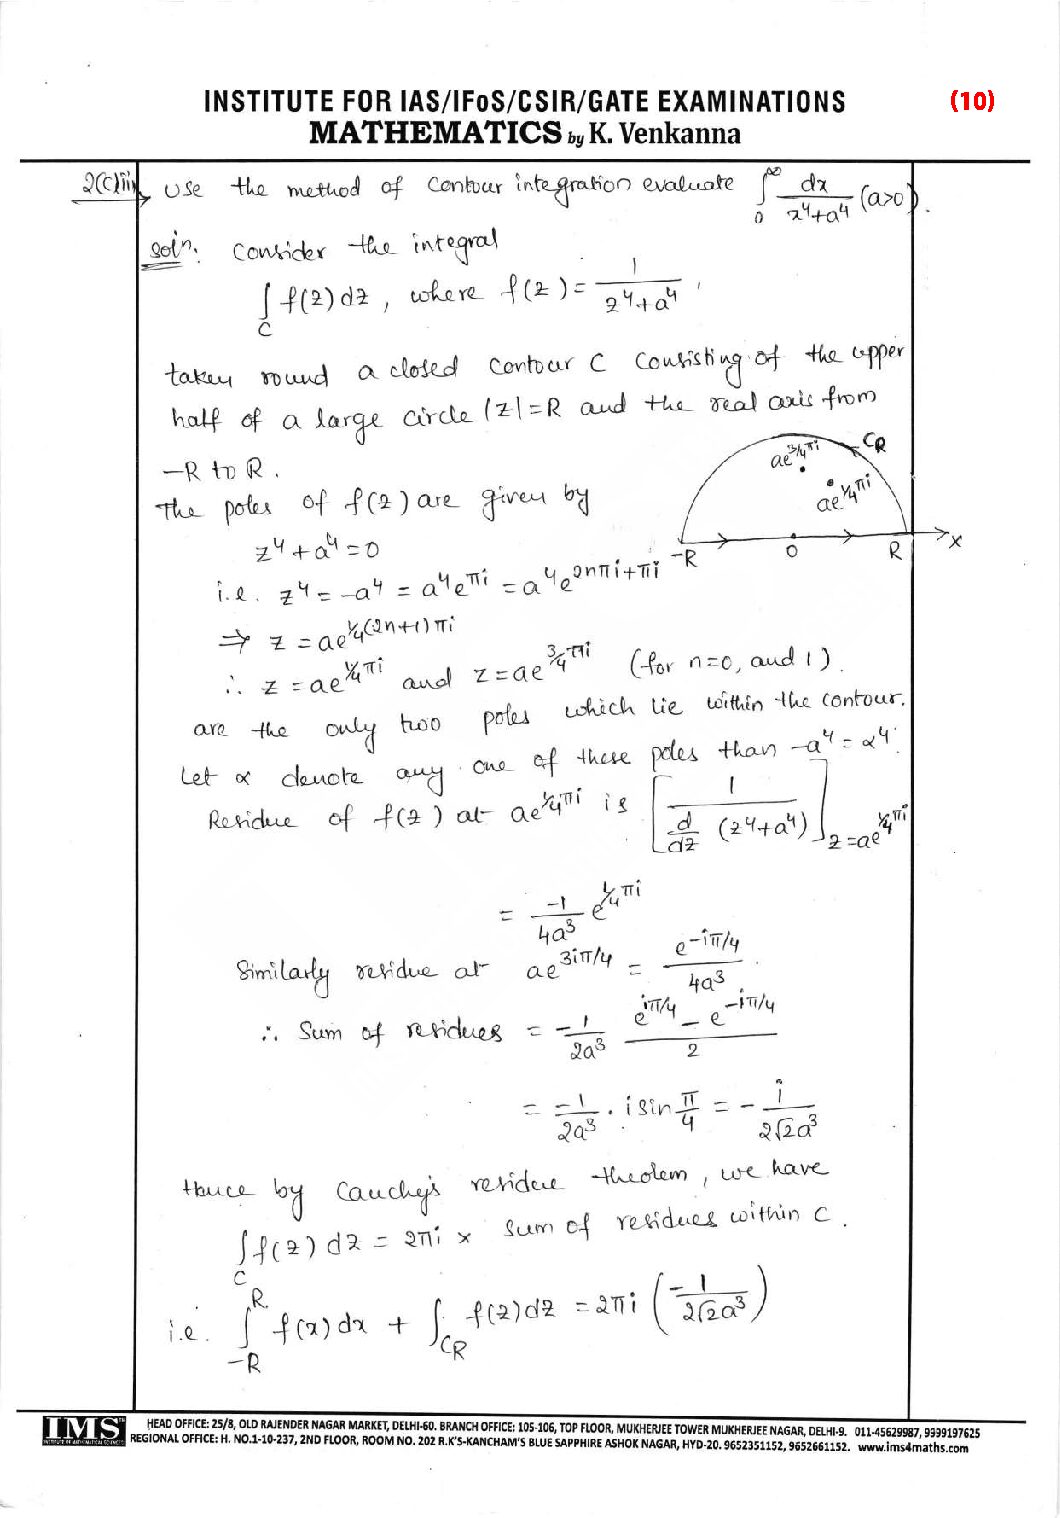 INSTITUTE FOR IAS/IFoS/CSIR/GATE EXAMINATIONS (10)
MATHEMATICS by K. Venkanna
2(c)(ii) Use the method of contour integration evaluate ∫₀^∞ dx/(x⁴+a⁴) (a>0).
Soln. Consider the integral
∫_C f(z)dz, where f(z) = 1/(z⁴+a⁴),
taken round a closed contour C consisting of the upper
half of a large circle |z|=R and the real axis from
-R to R.
ae^{3/4πi} C_R
ae^{1/4πi}
The poles of f(z) are given by
z⁴+a⁴=0
-R 0 R X
i.e. z⁴ = -a⁴ = a⁴e^{πi} = a⁴e^{2nπi+πi}
⇒ z = ae^{1/4(2n+1)πi}
∴ z = ae^{1/4πi} and z = ae^{3/4πi} (for n=0, and 1).
are the only two poles which lie within the contour.
Let α denote any one of these poles than -a⁴ = α⁴.
Residue of f(z) at ae^{1/4πi} is [1/(d/dz (z⁴+a⁴))]_{z=ae^{1/4πi}}
= -1/4a³ e^{1/4πi}
Similarly residue at ae^{3iπ/4} = e^{-iπ/4}/4a³.
∴ Sum of residues = -1/2a³ (e^{iπ/4} - e^{-iπ/4})/2
= -1/2a³ . i sin π/4 = - i/2√2a³
Hence by Cauchy's residue theorem, we have
∫_C f(z)dz = 2πi × sum of residues within C.
i.e. ∫_{-R}^{R} f(x)dx + ∫_{C_R} f(z)dz = 2πi (-1/2√2a³)
IMS HEAD OFFICE: 25/8, OLD RAJENDER NAGAR MARKET, DELHI-60. BRANCH OFFICE: 105-106, TOP FLOOR, MUKHERJEE TOWER MUKHERJEE NAGAR, DELHI-9. 011-45629987, 9999197625
REGIONAL OFFICE: H. NO.1-10-237, 2ND FLOOR, ROOM NO. 202 R.K'S-KANCHAM'S BLUE SAPPHIRE ASHOK NAGAR, HYD-20. 9652351152, 9652661152. www.ims4maths.com